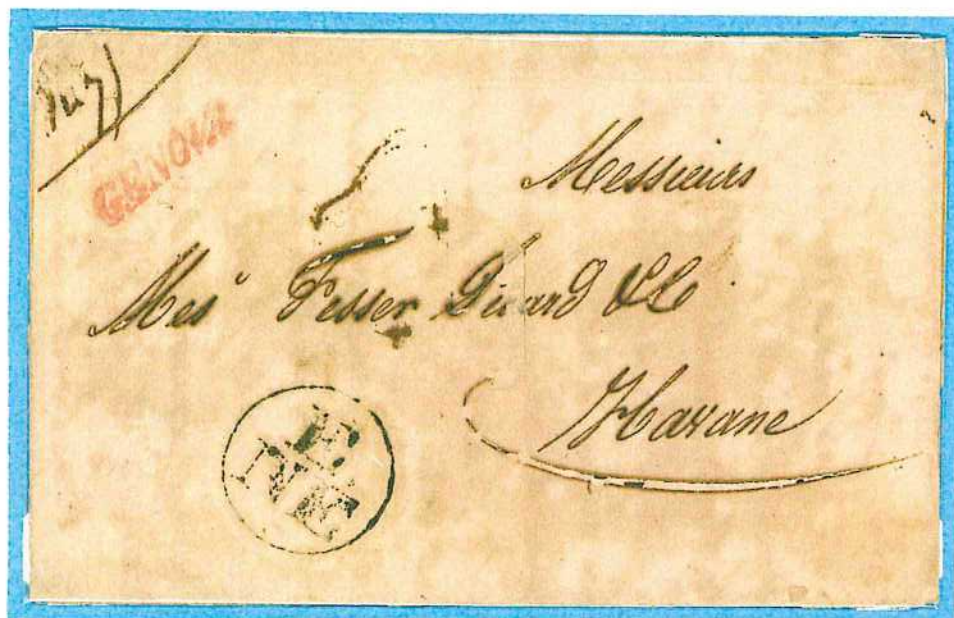 GENOVA
Messieurs
Mes^s Fesser Picard & C^o
Havane
E.
NE